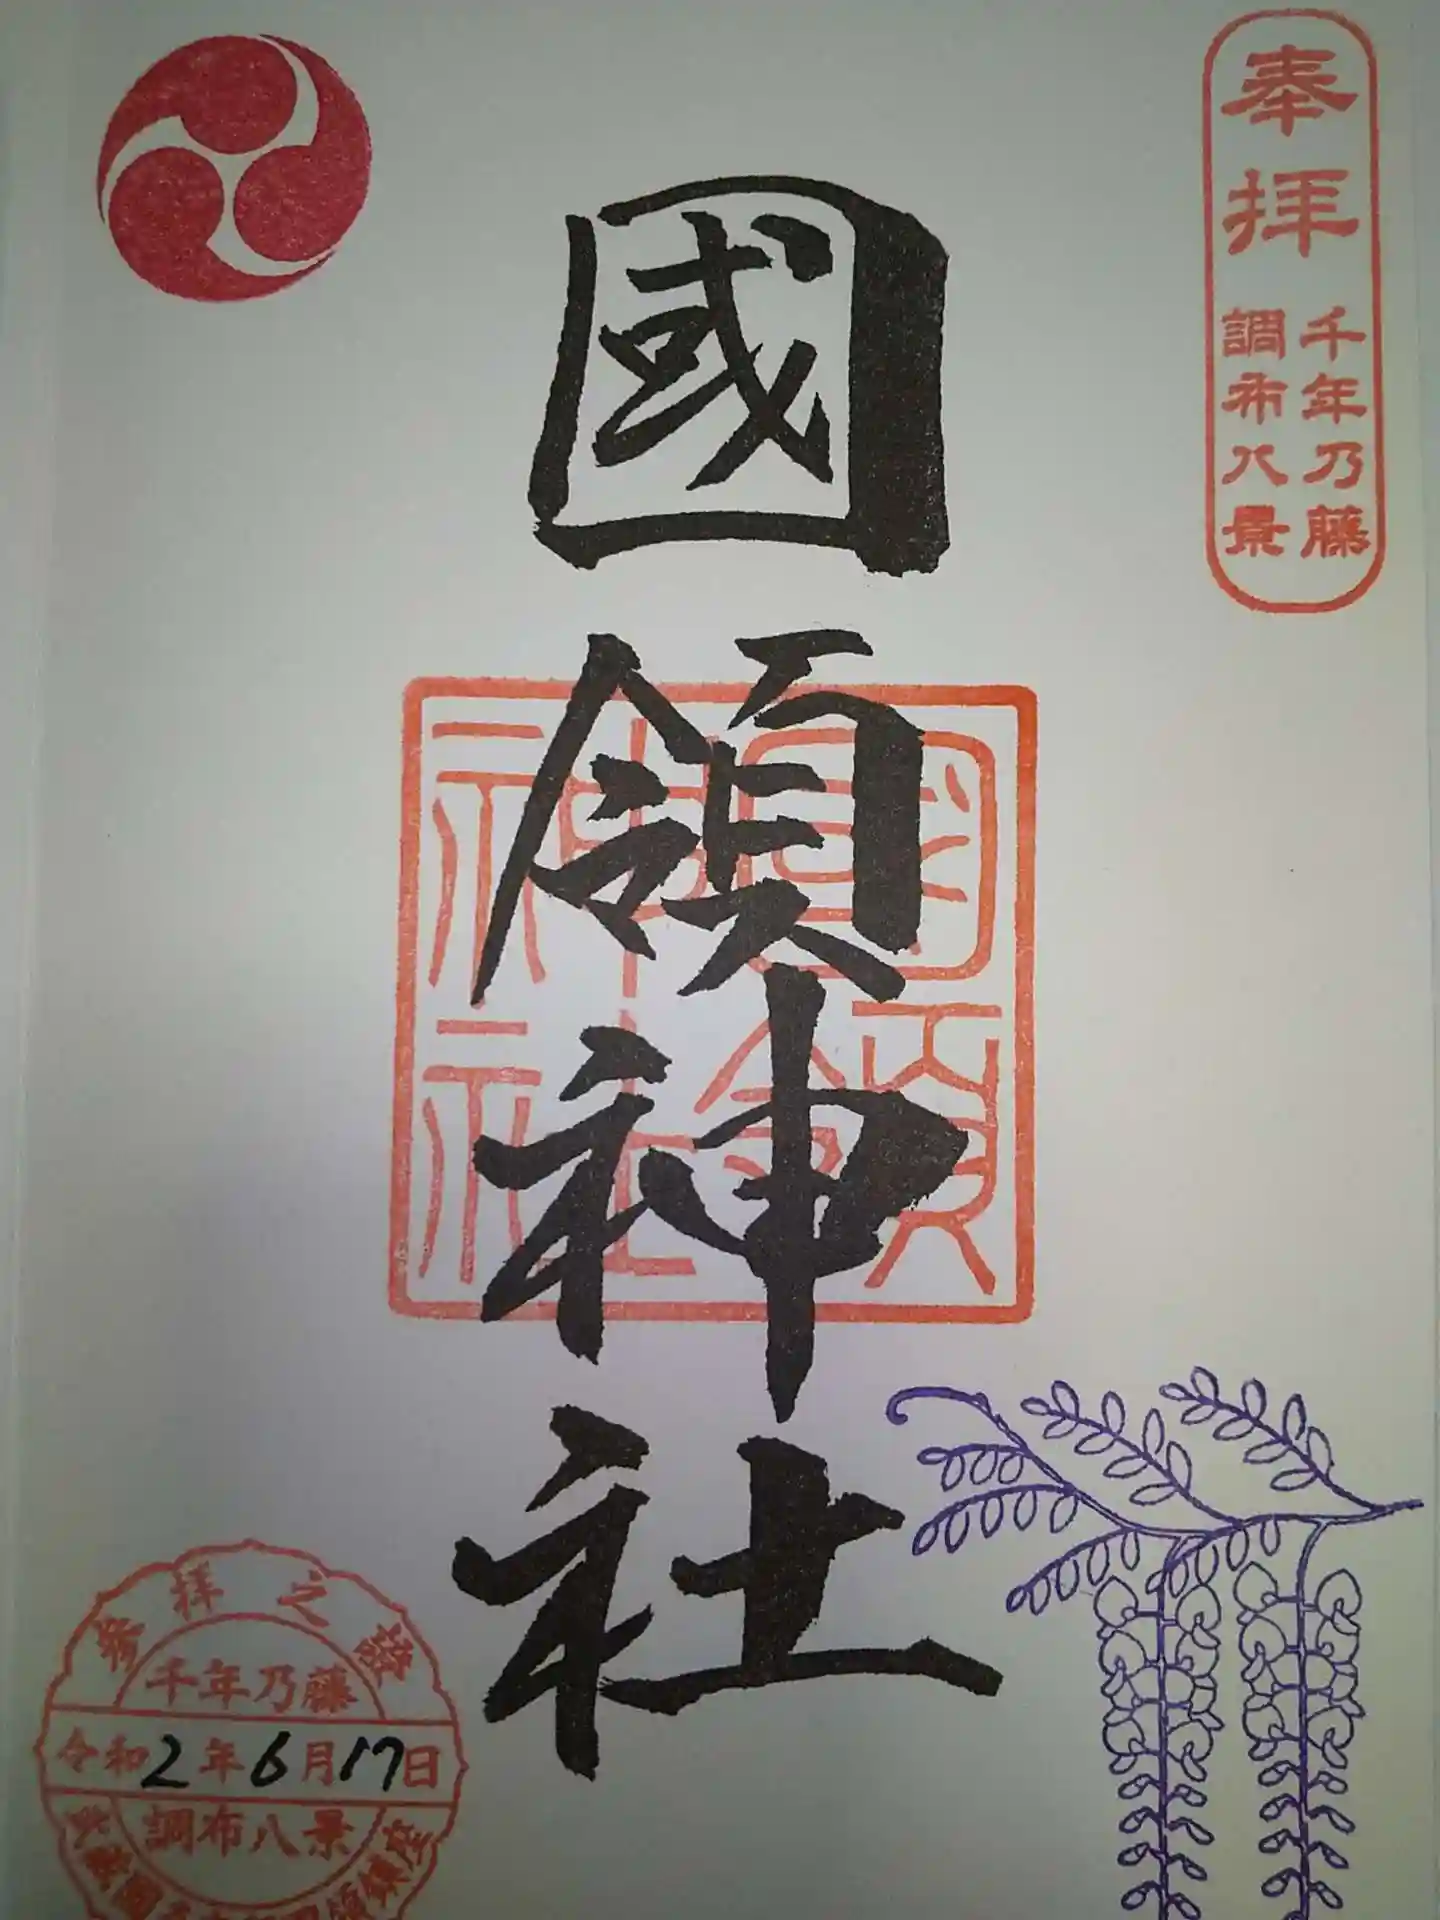 奉拝
千年乃藤
調布八景
國領神社
國領神社
參拝之證
千年乃藤
令和2年6月17日
調布八景